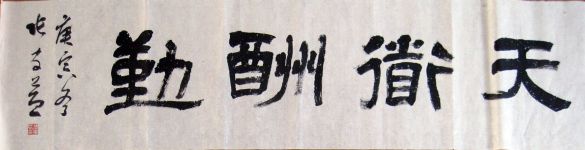 天衜酬勤
庚寅冬